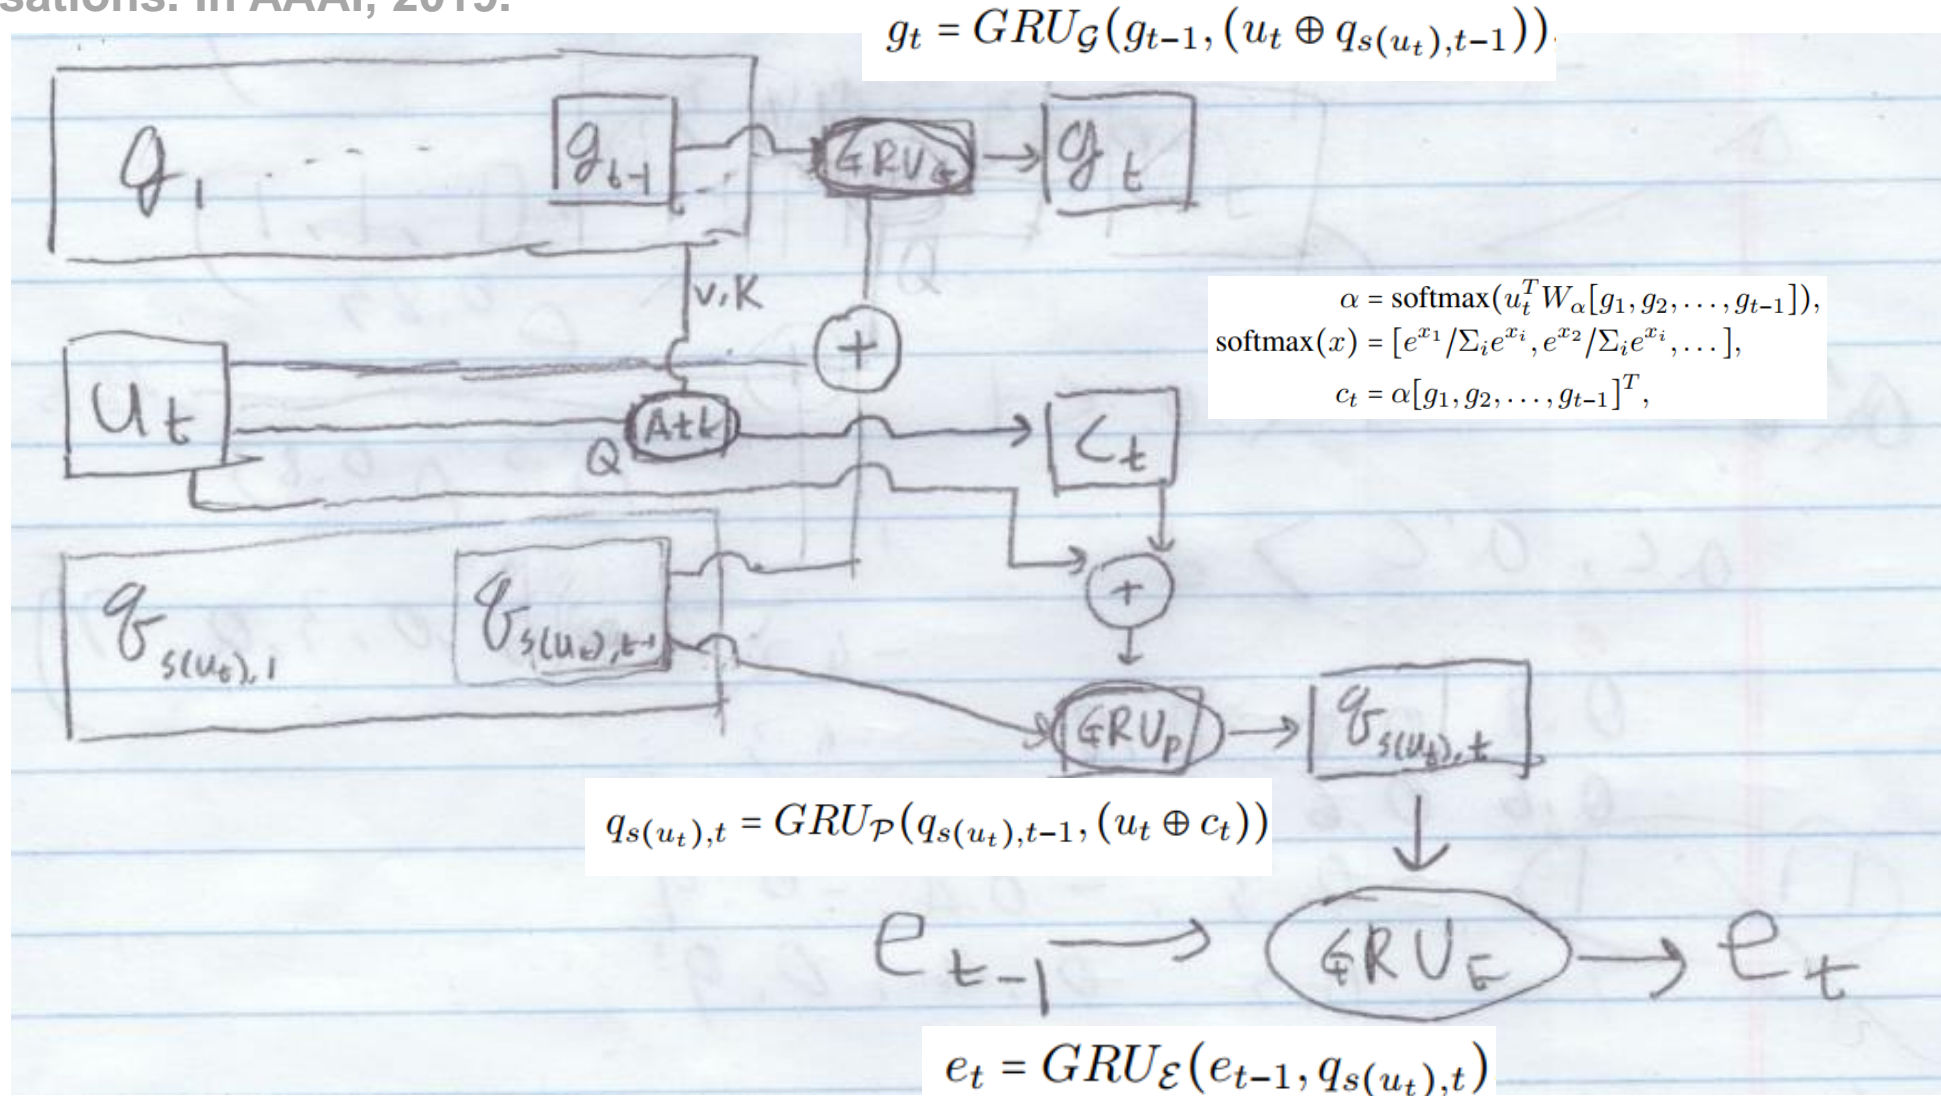 sations. In AAAI, 2019.
g_t = GRU_G(g_{t-1}, (u_t ⊕ q_{s(u_t),t-1})).
g_1 - - - - g_{t-1} GRU_G g_t
V, K
α = softmax(u_t^T W_α[g_1, g_2, ..., g_{t-1}]),
softmax(x) = [e^{x_1}/Σ_i e^{x_i}, e^{x_2}/Σ_i e^{x_i}, ...],
c_t = α[g_1, g_2, ..., g_{t-1}]^T,
+
u_t Att C_t
Q
+
q_{s(u_t),1} q_{s(u_t),t-1}
GRU_P q_{s(u_t),t}
q_{s(u_t),t} = GRU_P(q_{s(u_t),t-1}, (u_t ⊕ c_t))
e_{t-1} GRU_E e_t
e_t = GRU_E(e_{t-1}, q_{s(u_t),t})